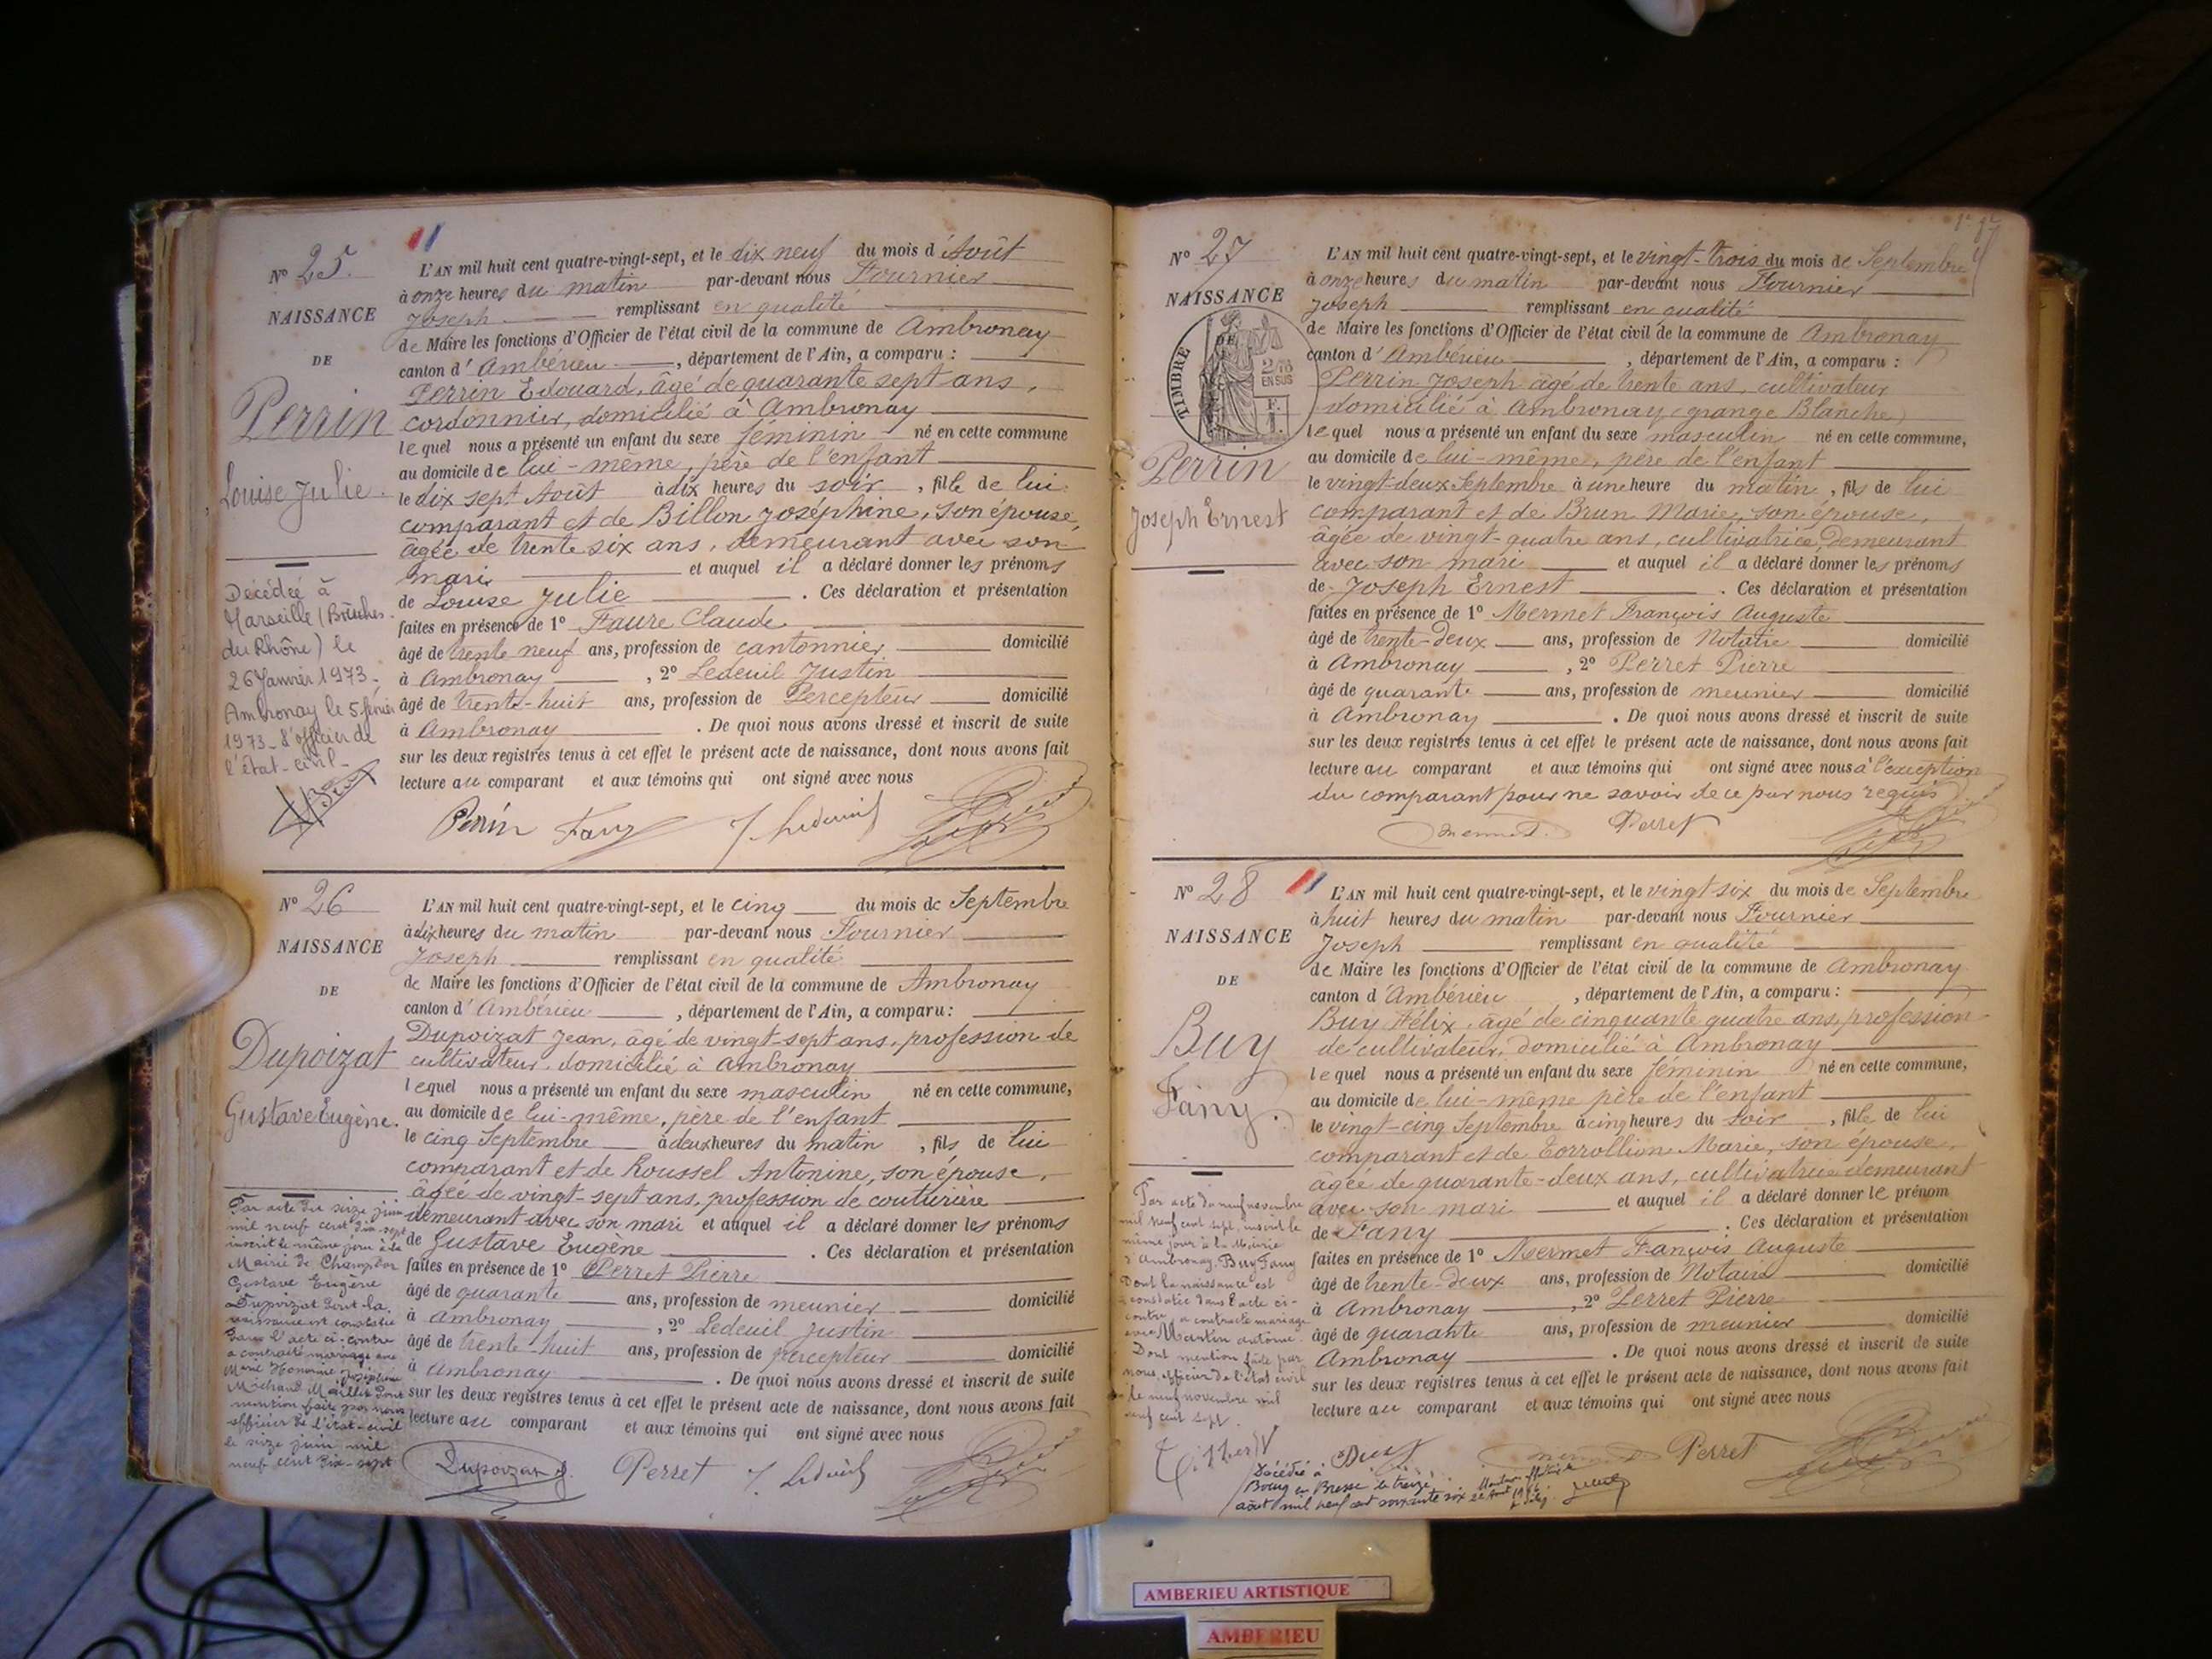 N° 25.
NAISSANCE
DE
Perrin
Louise Julie.
Décédée à
Marseille (Bouches
du Rhône) le
26 Janvier 1973.
Ambronay le 5 février
1973. L'officier de
l'état-civil-
L'AN mil huit cent quatre-vingt-sept, et le dix neuf du mois d'Août
à onze heures du matin par-devant nous Fournier
Joseph remplissant en qualité
de Maire les fonctions d'Officier de l'état civil de la commune de Ambronay
canton d'Ambérieu, département de l'Ain, a comparu :
Perrin Edouard, âgé de quarante sept ans,
cordonnier, domicilié à Ambronay
lequel nous a présenté un enfant du sexe féminin né en cette commune
au domicile de lui-même, père de l'enfant
le dix sept Août à dix heures du soir, fille de lui
comparant et de Billon Joséphine, son épouse,
âgée de trente six ans, demeurant avec son
mari et auquel il a déclaré donner les prénoms
de Louise Julie. Ces déclaration et présentation
faites en présence de 1° Faure Claude
âgé de trente neuf ans, profession de cantonnier domicilié
à Ambronay, 2° Ledeuil Justin
âgé de trente-huit ans, profession de Percepteur domicilié
à Ambronay. De quoi nous avons dressé et inscrit de suite
sur les deux registres tenus à cet effet le présent acte de naissance, dont nous avons fait
lecture au comparant et aux témoins qui ont signé avec nous
Perrin J. Ledeuil
N° 26
NAISSANCE
DE
Dupoizat
Gustave Eugène.
Par acte du seize juin
mil neuf cent dix-sept
inscrit le même jour à la
Mairie de Champdor
Gustave Eugène
Dupoizat dont la
naissance est constatée
dans l'acte ci-contre
a contracté mariage avec
Marie Honorine Joséphine
Michaud Maillet dont
mention faite par nous
officier de l'état-civil
le seize juin mil
neuf cent dix-sept
L'AN mil huit cent quatre-vingt-sept, et le cinq du mois de Septembre
à dix heures du matin par-devant nous Fournier
Joseph remplissant en qualité
de Maire les fonctions d'Officier de l'état civil de la commune de Ambronay
canton d'Ambérieu, département de l'Ain, a comparu :
Dupoizat Jean, âgé de vingt-sept ans, profession de
cultivateur, domicilié à Ambronay
lequel nous a présenté un enfant du sexe masculin né en cette commune,
au domicile de lui-même, père de l'enfant
le cinq Septembre à deux heures du matin, fils de lui
comparant et de Roussel Antonine, son épouse,
âgée de vingt-sept ans, profession de couturière
demeurant avec son mari et auquel il a déclaré donner les prénoms
de Gustave Eugène. Ces déclaration et présentation
faites en présence de 1° Perret Pierre
âgé de quarante ans, profession de meunier domicilié
à Ambronay, 2° Ledeuil Justin
âgé de trente-huit ans, profession de percepteur domicilié
à Ambronay. De quoi nous avons dressé et inscrit de suite
sur les deux registres tenus à cet effet le présent acte de naissance, dont nous avons fait
lecture au comparant et aux témoins qui ont signé avec nous
Dupoizat J. Perret J. Ledeuil
N° 27
NAISSANCE
DE
TIMBRE
2/10
EN SUS
Perrin
Joseph Ernest
L'AN mil huit cent quatre-vingt-sept, et le vingt-trois du mois de Septembre
à onze heures du matin par-devant nous Fournier
Joseph remplissant en qualité
de Maire les fonctions d'Officier de l'état civil de la commune de Ambronay
canton d'Ambérieu, département de l'Ain, a comparu :
Perrin Joseph âgé de trente ans, cultivateur
domicilié à Ambronay (grange Blanche)
lequel nous a présenté un enfant du sexe masculin né en cette commune,
au domicile de lui-même, père de l'enfant
le vingt-deux Septembre à une heure du matin, fils de lui
comparant et de Brun Marie, son épouse,
âgée de vingt-quatre ans, cultivatrice, demeurant
avec son mari et auquel il a déclaré donner les prénoms
de Joseph Ernest. Ces déclaration et présentation
faites en présence de 1° Mermet François Auguste
âgé de trente-deux ans, profession de Notaire domicilié
à Ambronay, 2° Perret Pierre
âgé de quarante ans, profession de meunier domicilié
à Ambronay. De quoi nous avons dressé et inscrit de suite
sur les deux registres tenus à cet effet le présent acte de naissance, dont nous avons fait
lecture au comparant et aux témoins qui ont signé avec nous à l'exception
du comparant pour ne savoir de ce par nous requis
Mermet Perret
N° 28
NAISSANCE
DE
Buy
Fany.
Par acte du neuf novembre
mil neuf cent sept, inscrit le
même jour à la Mairie
d'Ambronay, Buy Fany
dont la naissance est
constatée dans l'acte ci-
contre, a contracté mariage
avec Martin Antoine.
Dont mention faite par
nous, officier de l'état civil
le neuf novembre mil
neuf cent sept.
L'AN mil huit cent quatre-vingt-sept, et le vingt six du mois de Septembre
à huit heures du matin par-devant nous Fournier
Joseph remplissant en qualité
de Maire les fonctions d'Officier de l'état civil de la commune de Ambronay
canton d'Ambérieu, département de l'Ain, a comparu :
Buy Félix, âgé de cinquante quatre ans, profession
de cultivateur, domicilié à Ambronay
lequel nous a présenté un enfant du sexe féminin né en cette commune,
au domicile de lui-même père de l'enfant
le vingt-cinq Septembre à cinq heures du soir, fille de lui
comparant et de Torrollion Marie, son épouse,
âgée de quarante-deux ans, cultivatrice demeurant
avec son mari et auquel il a déclaré donner le prénom
de Fany. Ces déclaration et présentation
faites en présence de 1° Mermet François Auguste
âgé de trente-deux ans, profession de Notaire domicilié
à Ambronay, 2° Perret Pierre
âgé de quarante ans, profession de meunier domicilié
Ambronay. De quoi nous avons dressé et inscrit de suite
sur les deux registres tenus à cet effet le présent acte de naissance, dont nous avons fait
lecture au comparant et aux témoins qui ont signé avec nous
Buy Mermet Perret
Décédée à
Bourg en Bresse le treize
août mil neuf cent soixante six
AMBERIEU ARTISTIQUE
AMBERIEU